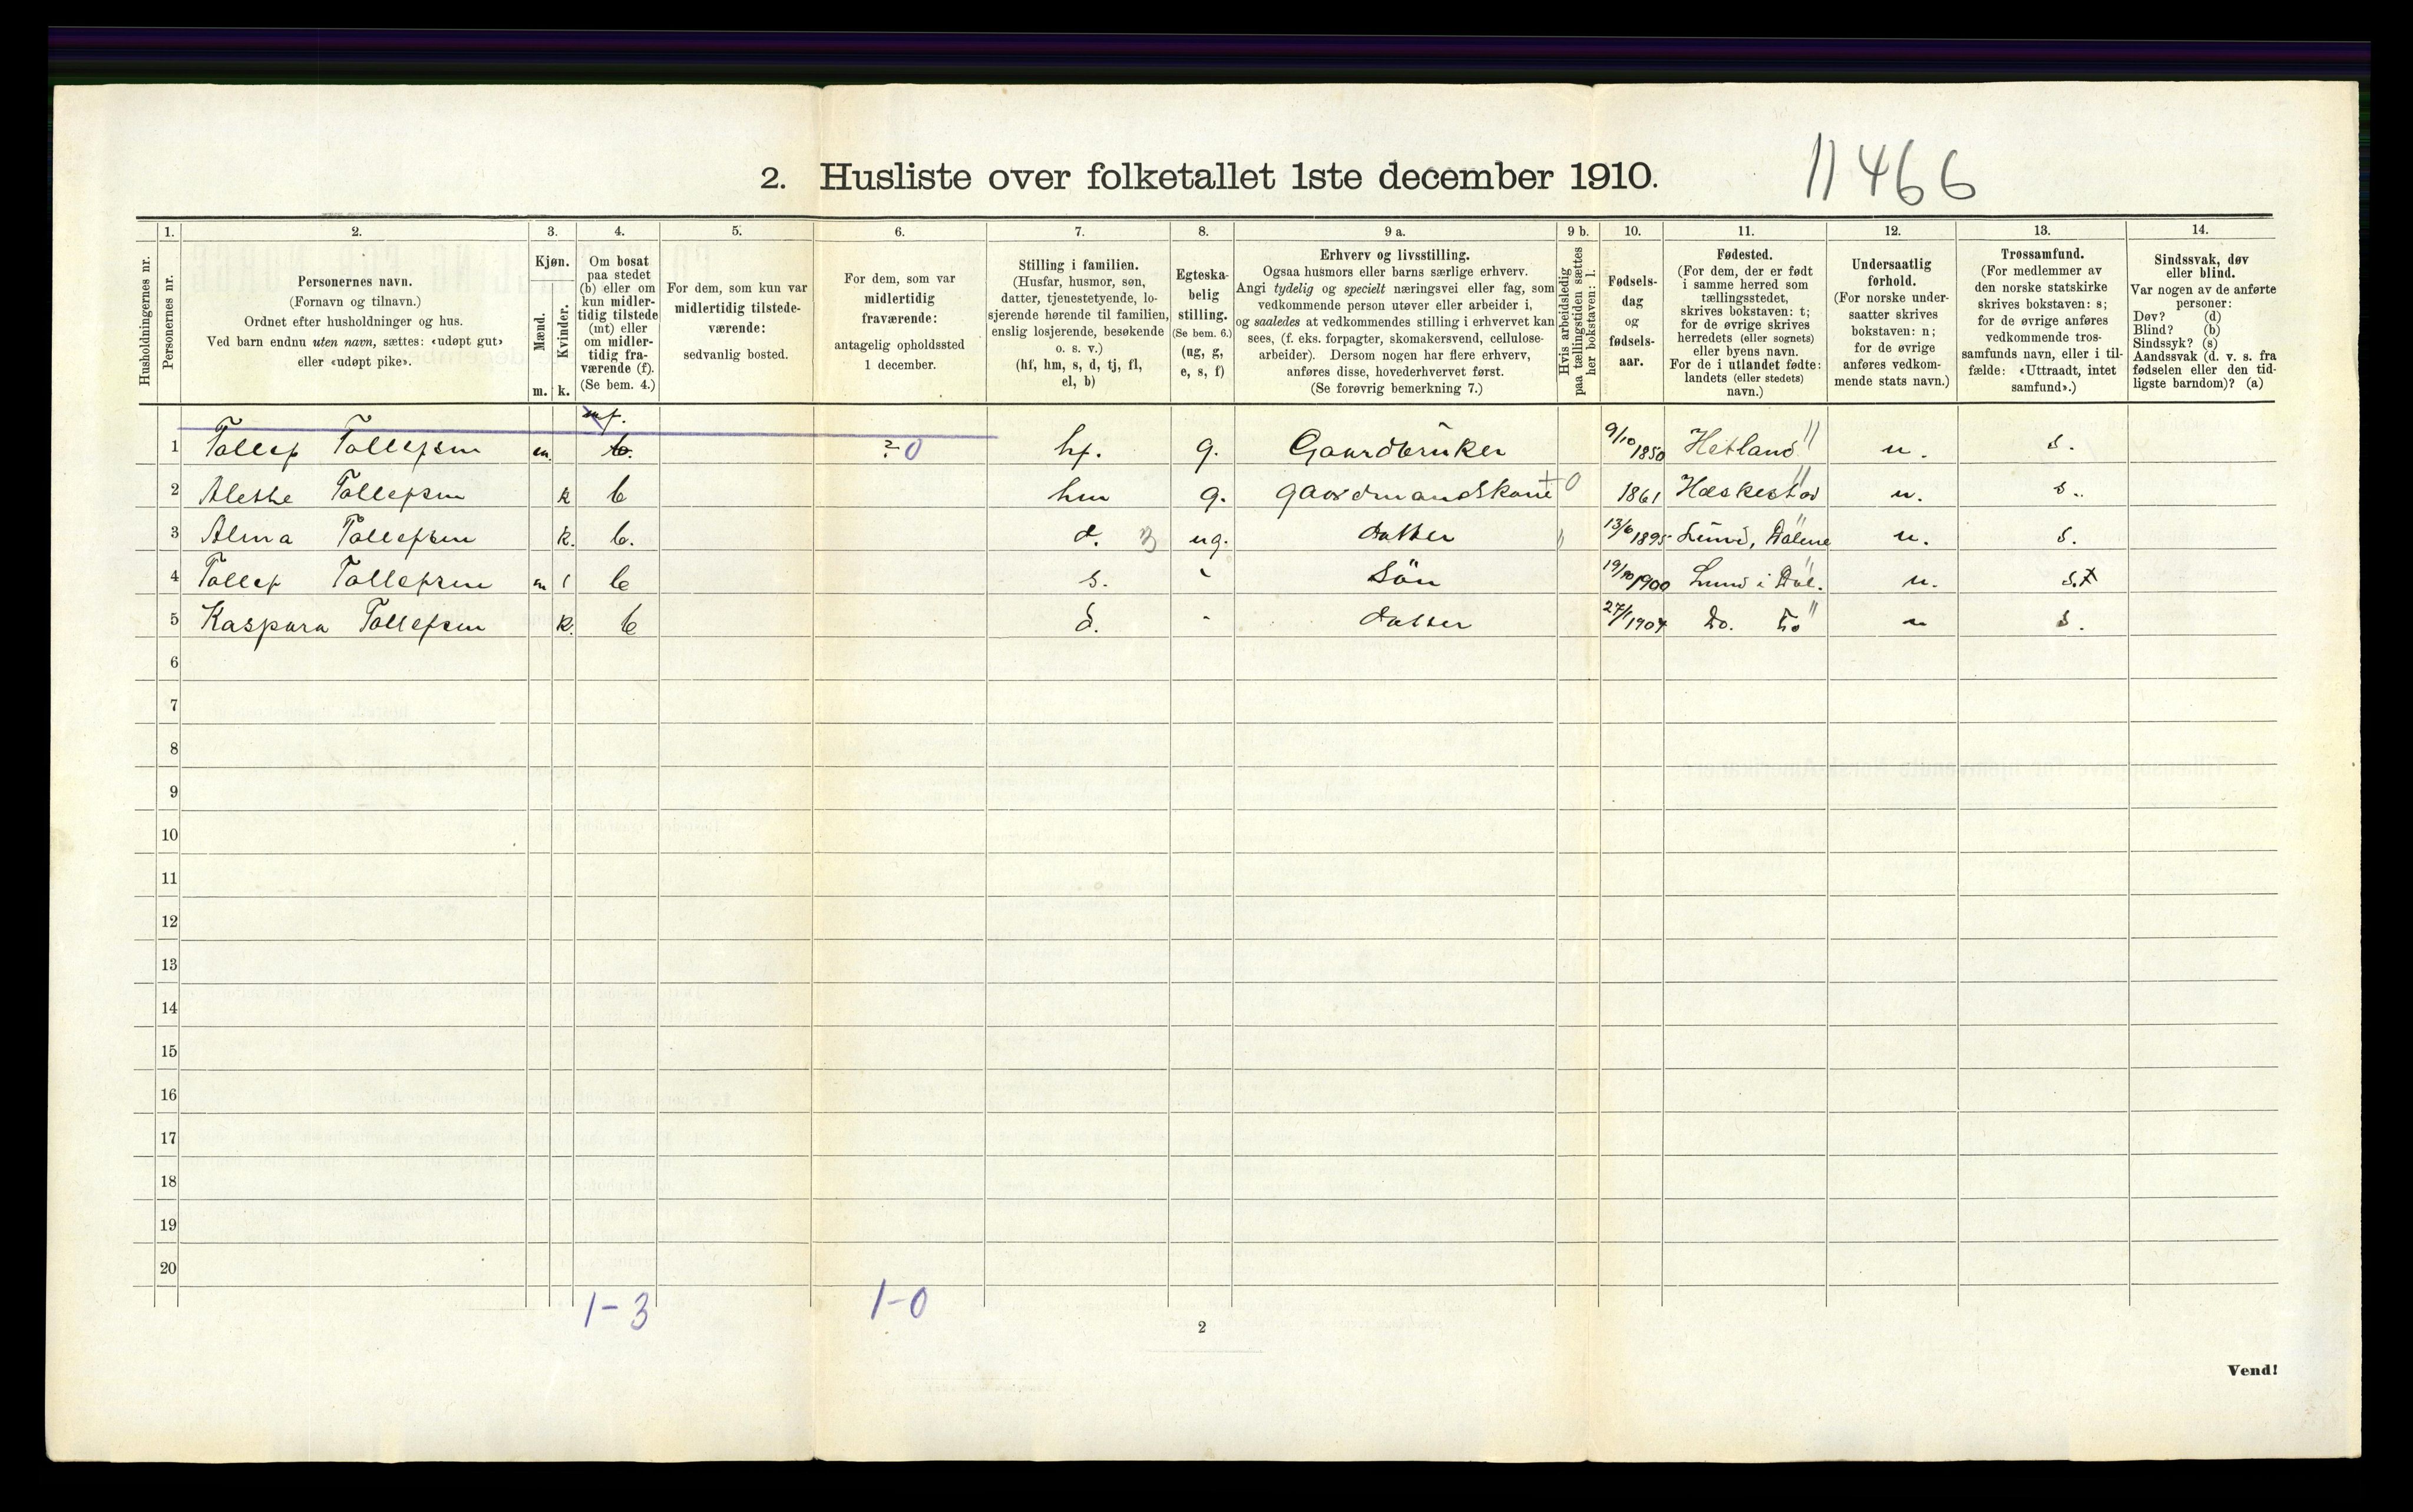 11466
2. Husliste over folketallet 1ste december 1910.
Husholdningernes nr.
1.
Personernes nr.
2.
Personernes navn.
(Fornavn og tilnavn.)
Ordnet efter husholdninger og hus.
Ved barn endnu uten navn, sættes: «udøpt gut»
eller «udøpt pike».
3.
Kjøn.
Mænd.
Kvinder.
m. k.
4.
Om bosat
paa stedet
(b) eller om
kun midler-
tidig tilstede
(mt) eller
om midler-
tidig fra-
værende (f).
(Se bem. 4.)
5.
For dem, som kun var
midlertidig tilstede-
værende:
sedvanlig bosted.
6.
For dem, som var
midlertidig
fraværende:
antagelig opholdssted
1 december.
7.
Stilling i familien.
(Husfar, husmor, søn,
datter, tjenestetyende, lo-
sjerende hørende til familien,
enslig losjerende, besøkende
o. s. v.)
(hf, hm, s, d, tj, fl,
el, b)
8.
Egteska-
belig
stilling.
(Se bem. 6.)
(ug, g,
e, s, f)
9 a.
Erhverv og livsstilling.
Ogsaa husmors eller barns særlige erhverv.
Angi tydelig og specielt næringsvei eller fag, som
vedkommende person utøver eller arbeider i,
og saaledes at vedkommendes stilling i erhvervet kan
sees, (f. eks. forpagter, skomakersvend, cellulose-
arbeider). Dersom nogen har flere erhverv,
anføres disse, hovederhvervet først.
(Se forøvrig bemerkning 7.)
9 b.
Hvis arbeidsledig
paa tællingstiden sættes
her bokstaven: l.
10.
Fødsels-
dag
og
fødsels-
aar.
11.
Fødested.
(For dem, der er født
i samme herred som
tællingsstedet,
skrives bokstaven: t;
for de øvrige skrives
herredets (eller sognets)
eller byens navn.
For de i utlandet fødte:
landets (eller stedets)
navn.)
12.
Undersaatlig
forhold.
(For norske under-
saatter skrives
bokstaven: n;
for de øvrige
anføres vedkom-
mende stats navn.)
13.
Trossamfund.
(For medlemmer av
den norske statskirke
skrives bokstaven: s;
for de øvrige anføres
vedkommende tros-
samfunds navn, eller i til-
fælde: «Uttraadt, intet
samfund».)
14.
Sindssvak, døv
eller blind.
Var nogen av de anførte
personer:
Døv? (d)
Blind? (b)
Sindssyk? (s)
Aandssvak (d. v. s. fra
fødselen eller den tid-
ligste barndom)? (a)
1 Tollef Tollefsen m. b. ? 0 hf. g. Gaardbruker 9/10 1850 Hetland n. s.
2 Alethe Tollefsen k b hm g. gaardmandskone 0 1861 Heskestad n. s.
3 Alma Tollefsen k. b. d. ug. datter 13/6 1895 Lund, Dalene n. s.
4 Tollef Tollefsen m b s. Sön 19/10 1900 Lund i Dal. n. s.
5 Kaspara Tollefsen k. b d. datter 27/1 1904 Do. Do n s.
6
7
8
9
10
11
12
13
14
15
16
17
18
19
20
1-3 1-0
2
Vend!